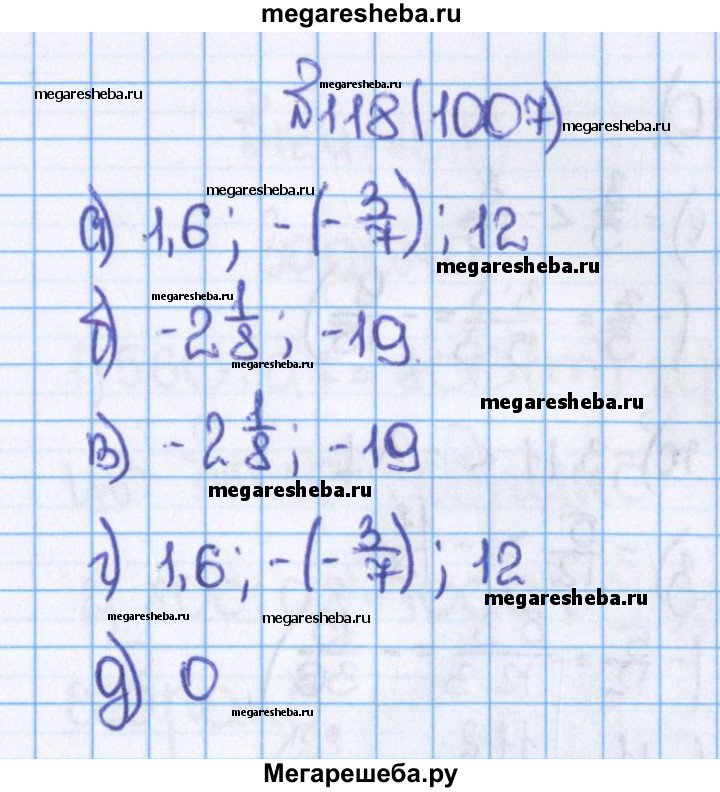 megaresheba.ru
megaresheba.ru
megaresheba.ru
№118(1007)
megaresheba.ru
megaresheba.ru
а) 1,6; -(-3/7); 12
megaresheba.ru
megaresheba.ru
б) -2 1/8; -19
megaresheba.ru
megaresheba.ru
в) -2 1/8; -19
megaresheba.ru
г) 1,6; -(-3/7); 12
megaresheba.ru
megaresheba.ru
megaresheba.ru
д) 0
megaresheba.ru
Мегарешеба.ру